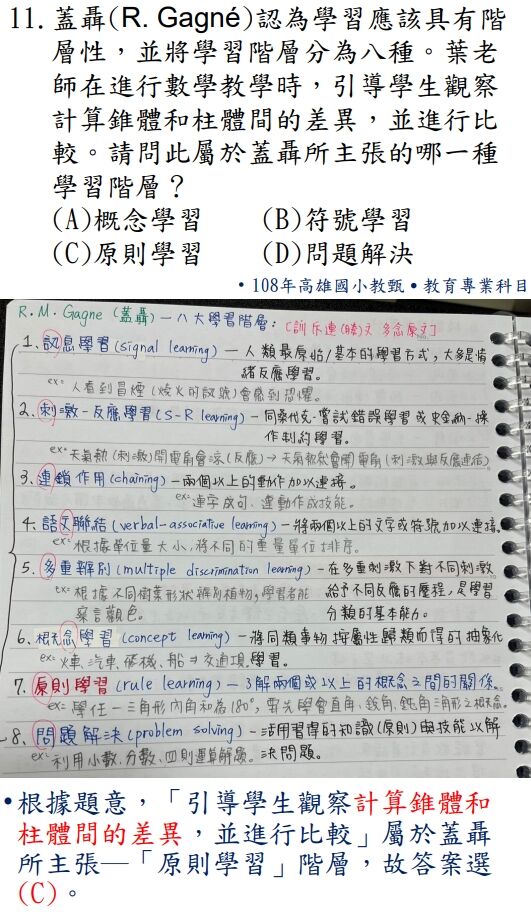 11. 蓋聶(R. Gagné)認為學習應該具有階
層性，並將學習階層分為八種。葉老
師在進行數學教學時，引導學生觀察
計算錐體和柱體間的差異，並進行比
較。請問此屬於蓋聶所主張的哪一種
學習階層？
(A)概念學習 (B)符號學習
(C)原則學習 (D)問題解決
•108年高雄國小教甄•教育專業科目
R.M.Gagne (蓋聶) — 八大學習階層：[訓斥連(聯)文 多念原文]
1、訊息學習(signal learning) — 人類最原始/基本的學習方式，大多是情
緒反應學習。
ex: 人看到冒煙(烽火的訊號)會感到恐懼。
2、刺激-反應學習(S-R learning) — 同桑代克-嘗試錯誤學習或史金納-操
作制約學習。
ex: 天氣熱(刺激)開電扇會涼(反應)→天氣熱就會開電扇(刺激與反應連結)
3、連鎖作用(chaining) — 兩個以上的動作加以連接。
ex: 連字成句、連動作成技能。
4、語文聯結(verbal-associative learning) — 將兩個以上的文字或符號加以連接。
ex: 根據單位量大小，將不同的重量單位排序。
5、多重辨別(multiple discrimination learning) — 在多重刺激下對不同刺激
ex: 根據不同樹葉形狀辨別植物，學習者能 給予不同反應的歷程，是學習
察言觀色。 分類的基本能力。
6、概念學習(concept learning) — 將同類事物按屬性歸類而得的抽象化
ex: 火車、汽車、飛機、船⇒交通工具 學習。
7、原則學習(rule learning) — 了解兩個或以上的概念之間的關係。
ex: 學任一三角形內角和為180°，需先學會直角、銳角、鈍角三角形之概念。
8、問題解決(problem solving) — 活用習得的知識(原則)與技能以解
ex: 利用小數、分數、四則運算解題。 決問題。
•根據題意，「引導學生觀察計算錐體和
柱體間的差異，並進行比較」屬於蓋聶
所主張—「原則學習」階層，故答案選
(C)。